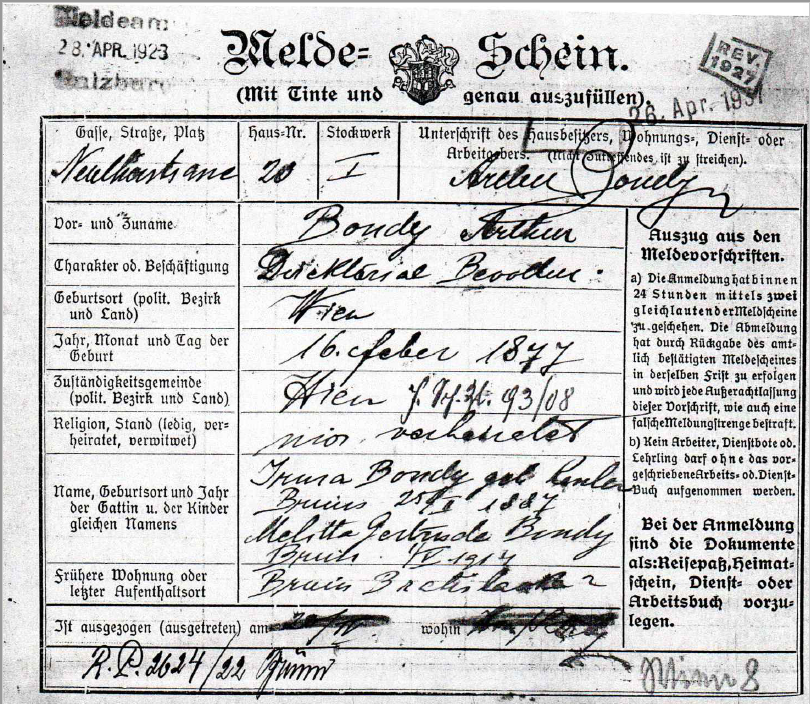 Meldeamt
28. APR. 1923
Salzburg
Melde=Schein.
(Mit Tinte und genau auszufüllen).
REV. 1927
26. Apr. 193
Gasse, Straße, Platz
Haus-Nr.
Stockwerk
Unterschrift des Hausbesitzers, Wohnungs-, Dienst- oder
Arbeitgebers. (Nicht Zutreffendes ist zu streichen).
20
I
Bondy
Vor- und Zuname
Bondy Arthur
Charakter od. Beschäftigung
Geburtsort (polit. Bezirk
und Land)
Wien
Jahr, Monat und Tag der
Geburt
16. feber 1877
Zuständigkeitsgemeinde
(polit. Bezirk und Land)
Wien 93/08
Religion, Stand (ledig, ver-
heiratet, verwitwet)
mos. verheiratet
Name, Geburtsort und Jahr
der Gattin u. der Kinder
gleichen Namens
Irma Bondy geb.
1887
Melitta Gertrude Bondy
Frühere Wohnung oder
letzter Aufenthaltsort
Ist ausgezogen (ausgetreten) am
wohin
R. P. 2624/22 Brünn
Wien 8
Auszug aus den
Meldevorschriften.
a) Die Anmeldung hat binnen
24 Stunden mittels zwei
gleichlautender Meldscheine
zu geschehen. Die Abmeldung
hat durch Rückgabe des amt-
lich bestätigten Meldescheines
in derselben Frist zu erfolgen
und wird jede Außerachtlassung
dieser Vorschrift, wie auch eine
falsche Meldung strenge bestraft.
b) Kein Arbeiter, Dienstbote od.
Lehrling darf ohne das vor-
geschriebene Arbeits- od. Dienst-
Buch aufgenommen werden.
Bei der Anmeldung
sind die Dokumente
als: Reisepaß, Heimat-
schein, Dienst- oder
Arbeitsbuch vorzu-
legen.